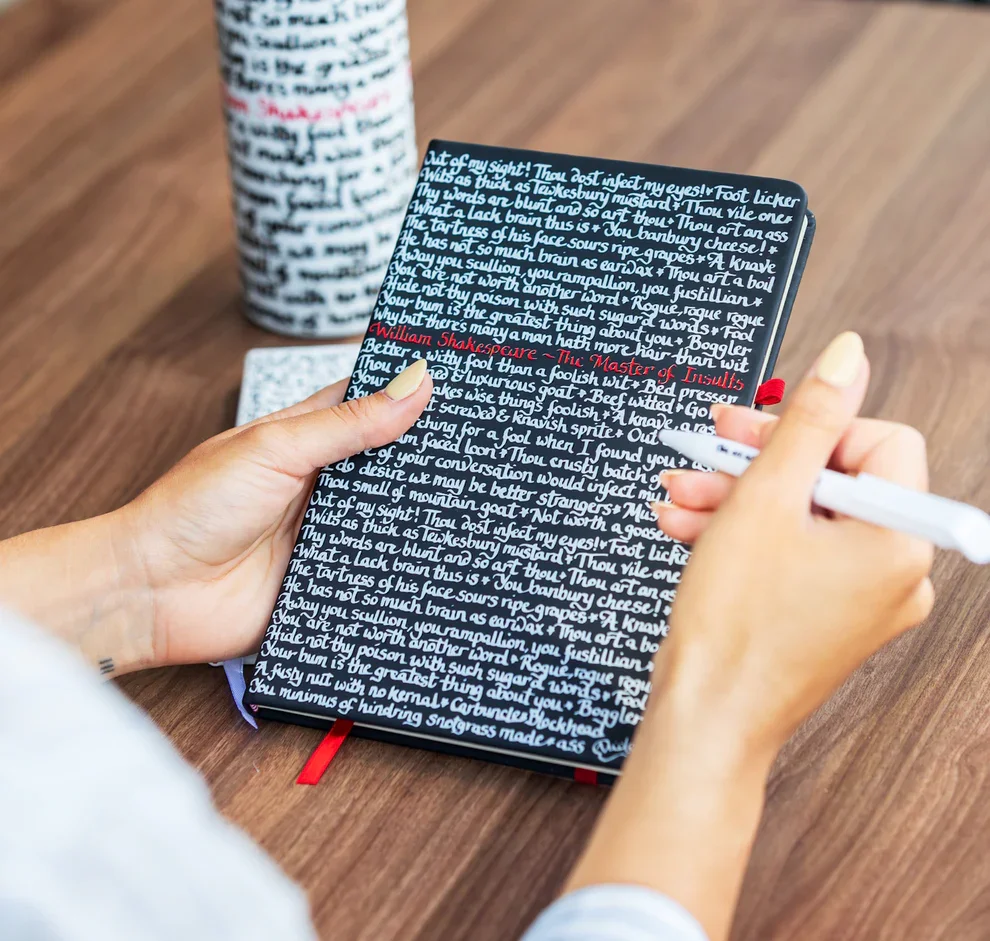 not so much brain
scullion, you
is the greatest
there's many a man
Shakespeare
a witty fool than
Out of my sight! Thou dost infect my eyes! * Foot licker
Wits as thick as Tewkesbury mustard * Thou vile one
Thy words are blunt and so art thou * Thou art an ass
What a lack brain this is * You banbury cheese! *
The tartness of his face sours ripe grapes * A knave
He has not so much brain as earwax * Thou art a boil
Away you scullion, you rampallion, you fustillian *
You are not worth another word * Rogue, rogue rogue
Hide not thy poison with such sugar'd words * Fool
Your bum is the greatest thing about you * Boggler
Why but there's many a man hath more hair than wit
William Shakespeare ~ The Master of Insults
Better a witty fool than a foolish wit * Bed presser
Thou & luxurious goat * Beef witted * Go
makes wise things foolish * A knave a
screwed & knavish sprite * Out
for a fool when I found you
faced loon * Thou crusty batch
of your conversation would infect my
do desire we may be better strangers *
Thou smell of mountain goat * Not worth a goose
Out of my sight! Thou dost infect my eyes! * Foot licker
Wits as thick as Tewkesbury mustard * Thou vile one
Thy words are blunt and so art thou * Thou art an ass
What a lack brain this is * You banbury cheese! *
The tartness of his face sours ripe grapes * A knave
He has not so much brain as earwax * Thou art a bo
Away you scullion, you rampallion, you fustillian *
You are not worth another word * Rogue, rogue
Hide not thy poison with such sugar'd words * Fool
Your bum is the greatest thing about you * Boggler
A fusty nut with no kernal * Carbuncle * Blockhead
You minimus of hindring snotgrass made * ass